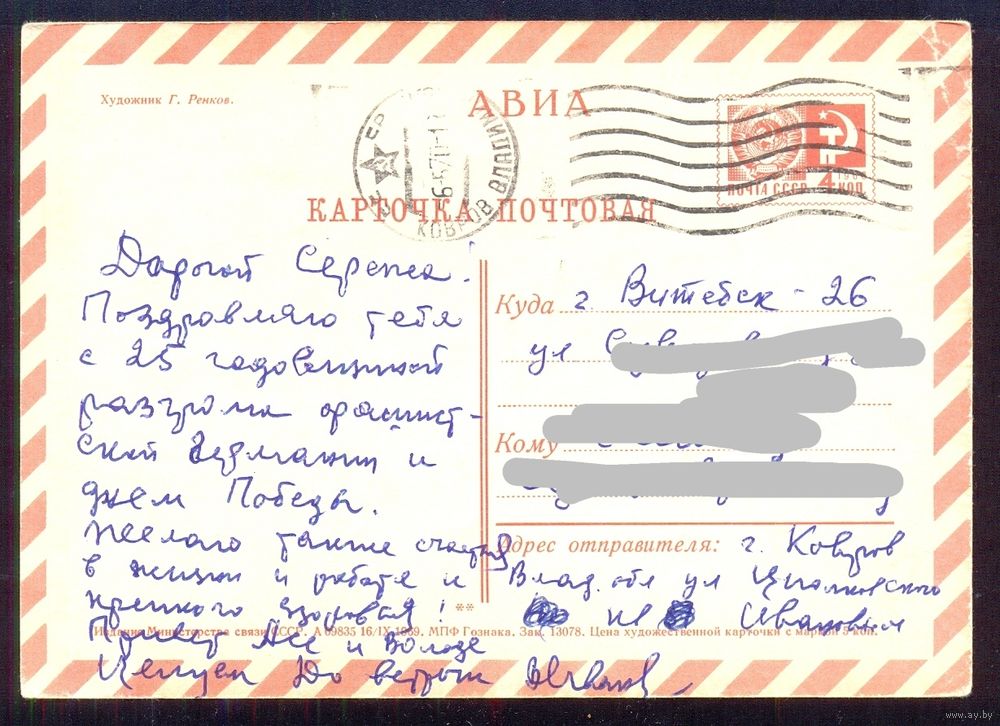 Художник Г. Ренков.
АВИА
КОВРОВ ВЛАДИМ
6-5-70-1
ПОЧТА СССР 4 КОП.
1966
КАРТОЧКА ПОЧТОВАЯ
Дарогой Сережа!
Поздравляю тебя
с 25 годовщиной
разгрома фашист-
ской Германии и
днем Победы.
Желаю также счастья
в жизни и работе и
крепкого здоровья!
Привет Асе и Володе
Целуем До встречи
Куда г. Витебск - 26
ул
Кому
Адрес отправителя: г. Ковров
Влад. обл ул Циолковского
**
Издание Министерства связи СССР. А 09835 16/IX-1969. МПФ Гознака. Зак. 13078. Цена художественной карточки с маркой 5 коп.
www.ay.by